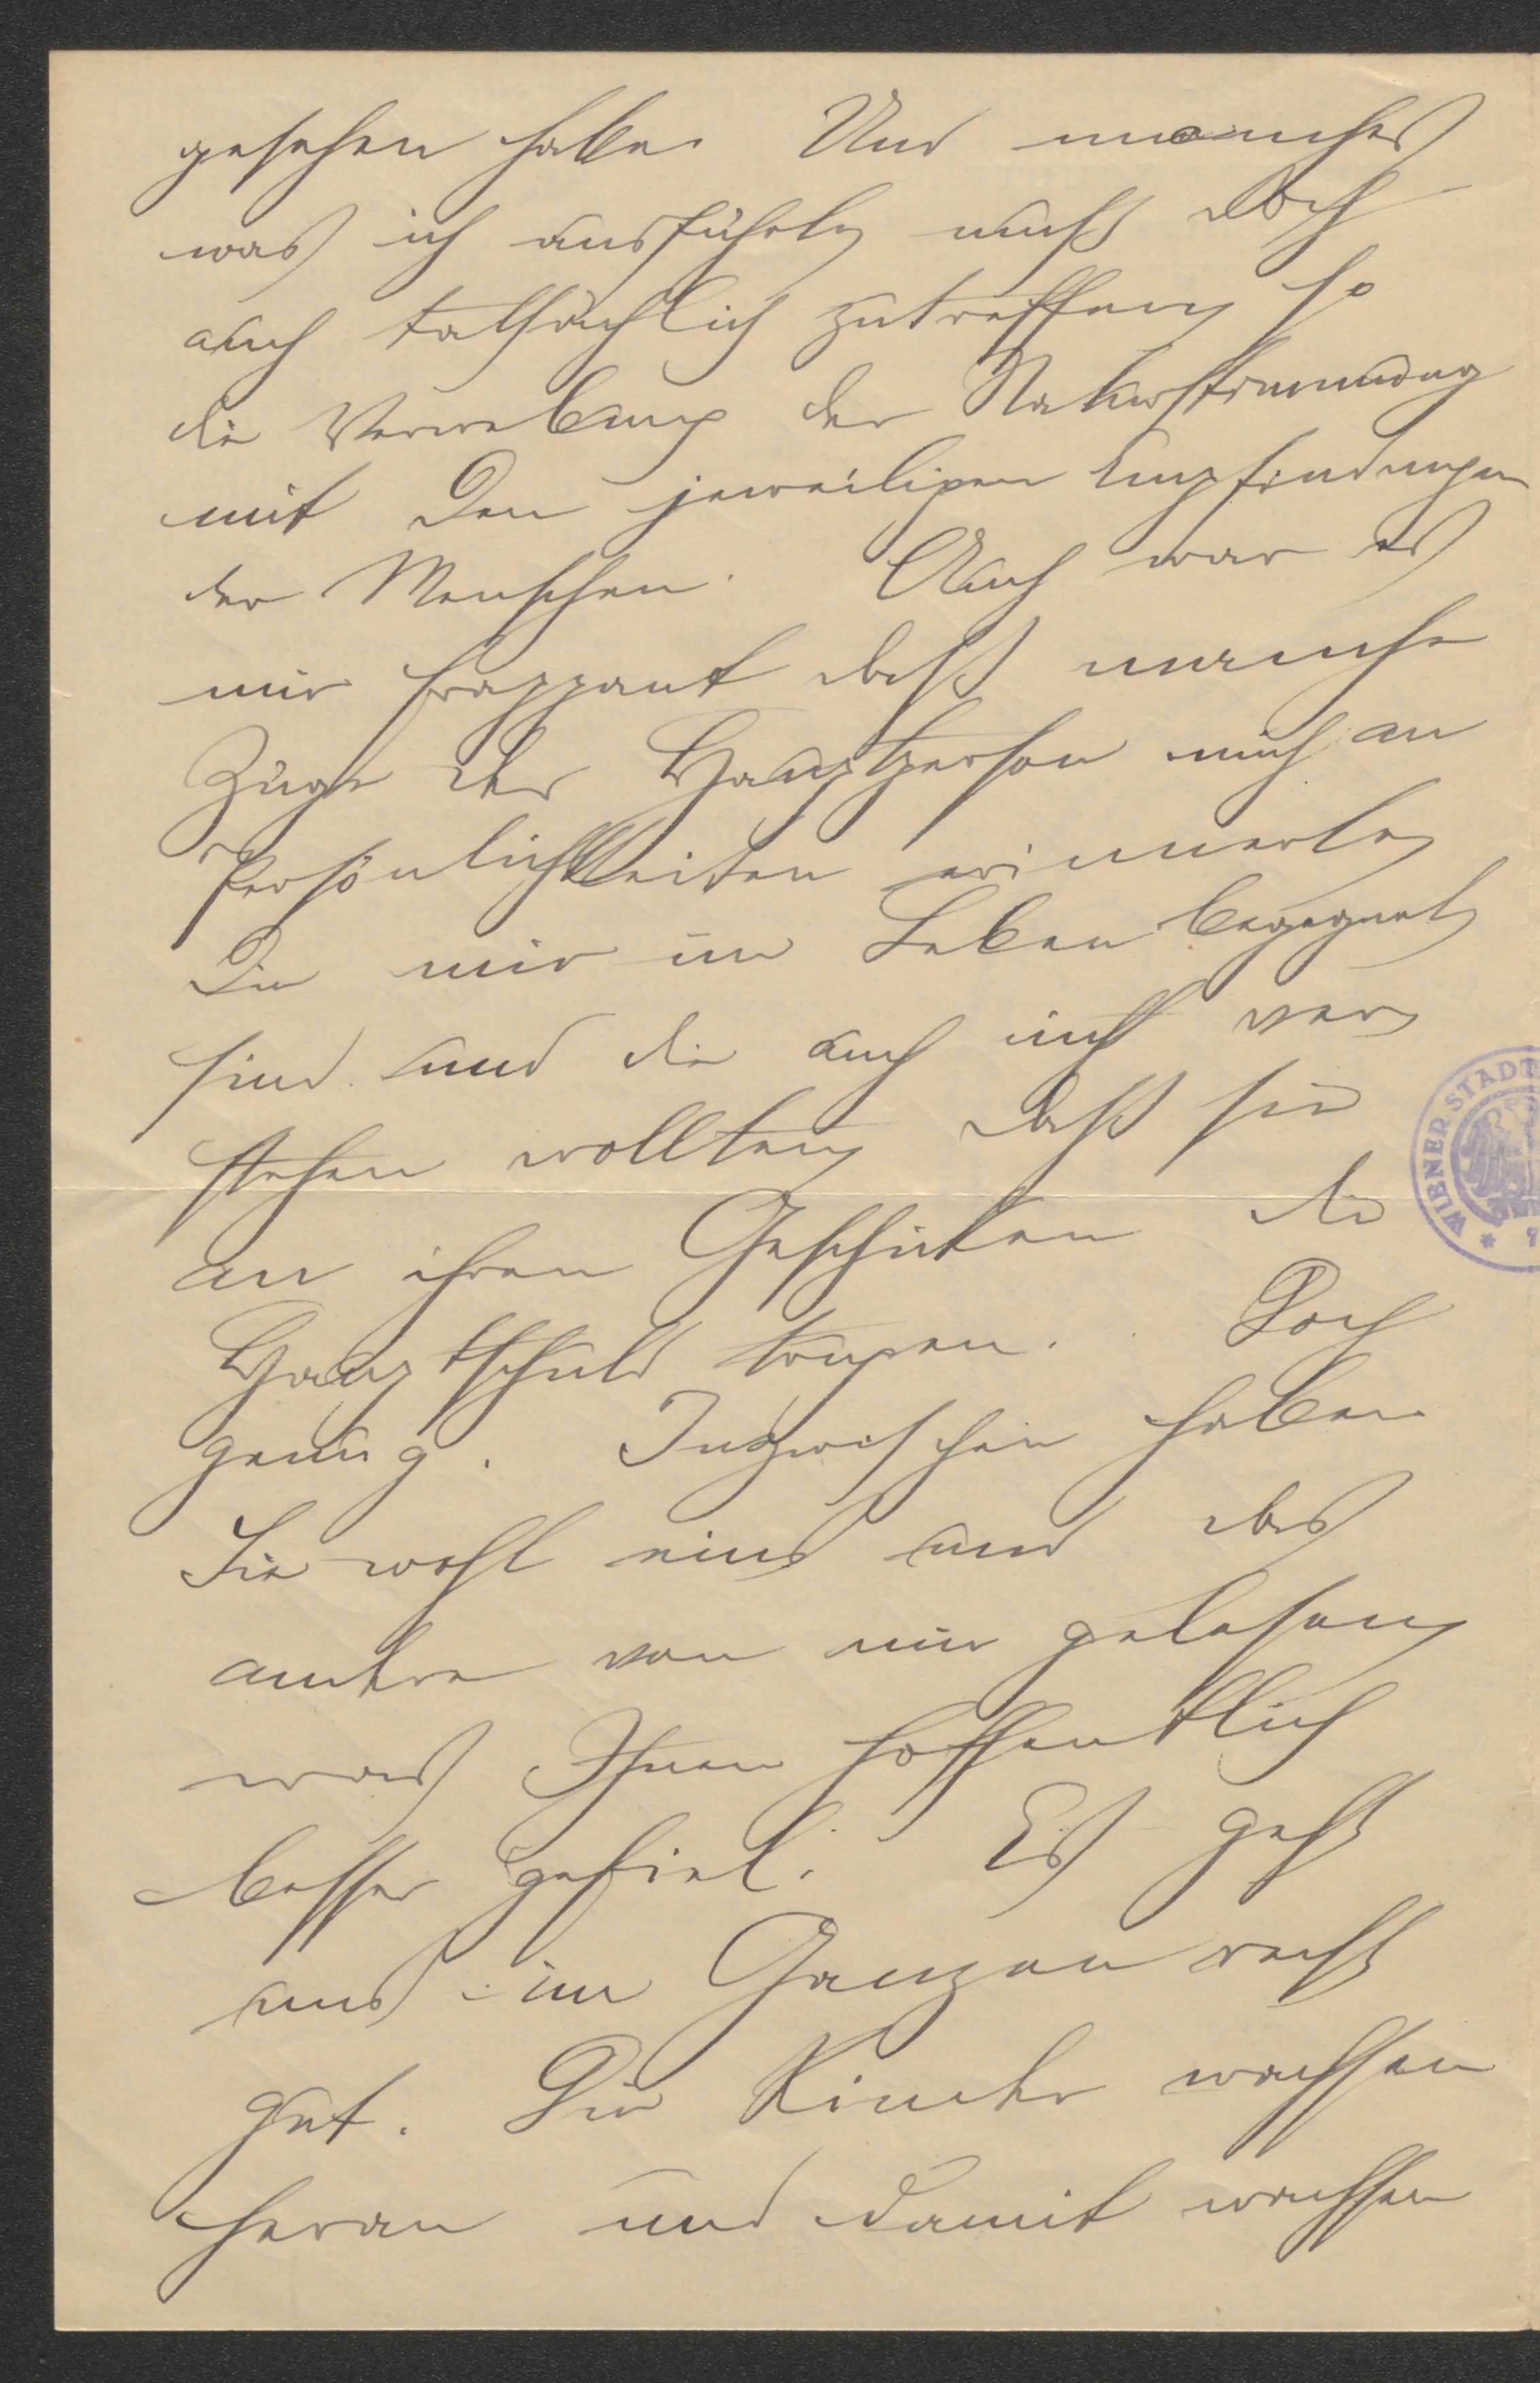 gesehen habe. Und manches
was ich ausführte, muß doch
auch tatsächlich zutreffen, so
die Verwebung der Naturstimmung
mit den jeweiligen Empfindungen
der Menschen. Auch war es
mir frappant daß manche
Züge der Hauptperson mich an
Persönlichkeiten erinnerten,
Die mir im Leben begegnet
sind und die auch nicht ver
stehen wollten, daß sie
an ihren Geschicken die
Hauptschuld trugen. Doch
genug. Inzwischen haben
Sie wohl eins und das
andre von mir gelesen,
was Ihnen hoffentlich
besser gefiel. Es geht
uns im Ganzen recht
gut. Die Kinder wachsen
heran und damit wachsen
WIENER STADT